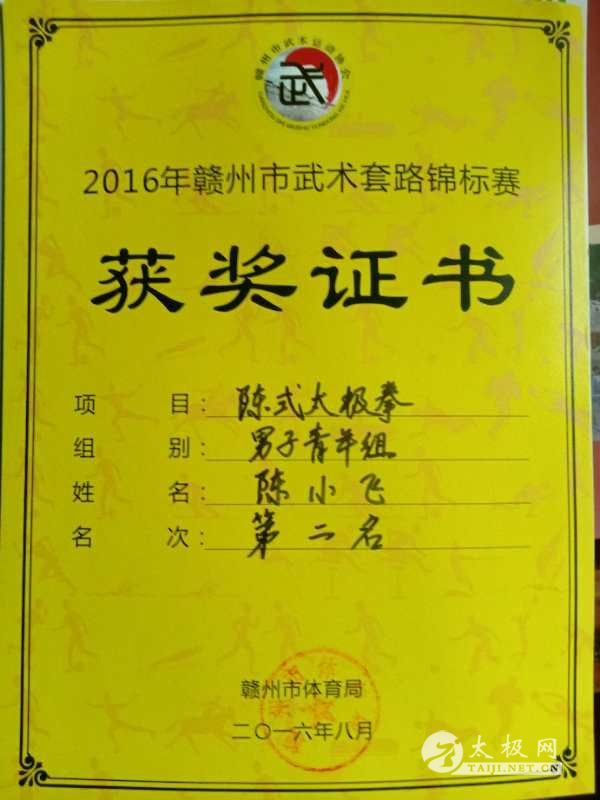 赣州市武术运动协会
武
2016年赣州市武术套路锦标赛
获奖证书
项目：陈式太极拳
组别：男子青年组
姓名：陈小飞
名次：第二名
赣州市体育局
二〇一六年八月
太极网
TAIJI.NET.CN